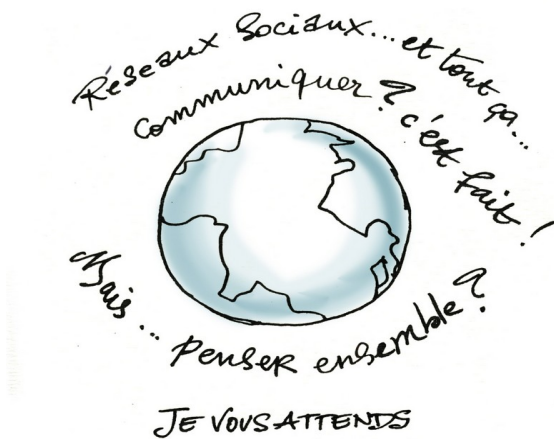 Réseaux Sociaux... et tout ça...
Communiquer ? c'est fait !
Mais... Penser ensemble ?
JE VOUS ATTENDS